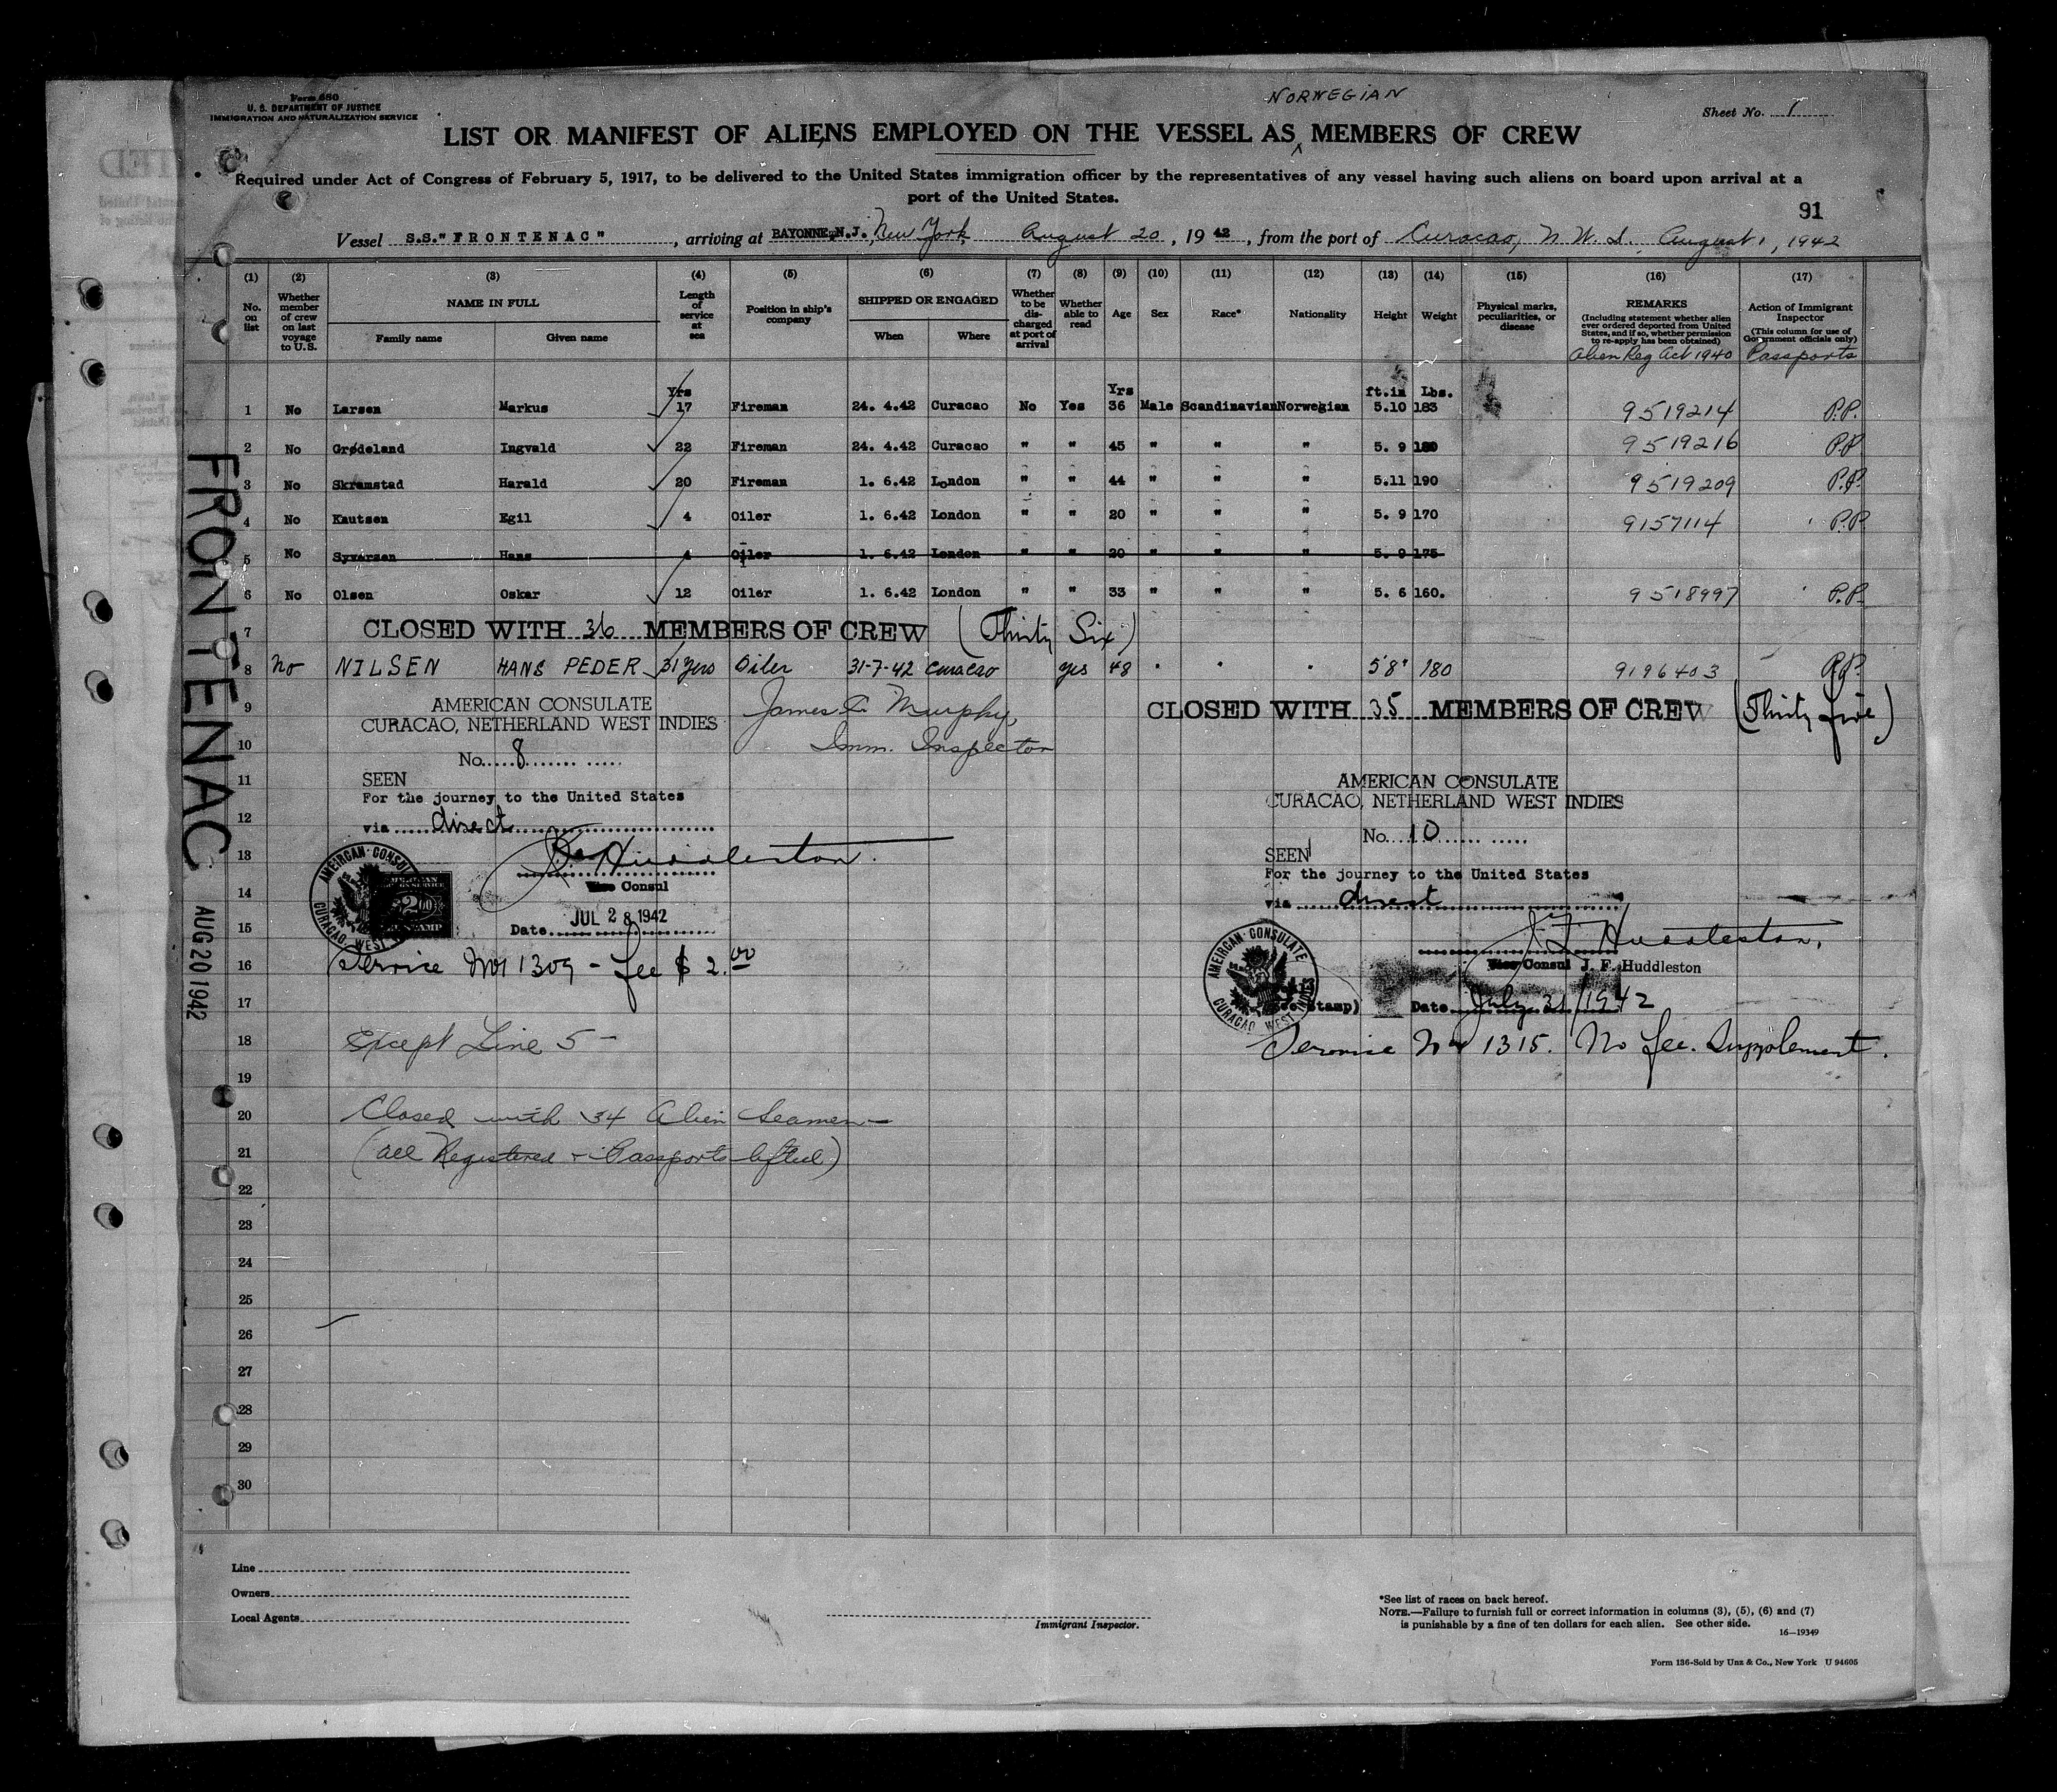 Form 680
U. S. DEPARTMENT OF JUSTICE
IMMIGRATION AND NATURALIZATION SERVICE
NORWEGIAN
Sheet No. 1
LIST OR MANIFEST OF ALIENS EMPLOYED ON THE VESSEL AS MEMBERS OF CREW
Required under Act of Congress of February 5, 1917, to be delivered to the United States immigration officer by the representatives of any vessel having such aliens on board upon arrival at a
port of the United States.
91
Vessel S.S. "FRONTENAC", arriving at BAYONNE, N.J., New York August 20, 1942, from the port of Curacao, N.W.I. August 1, 1942
(1) (2) (3) (4) (5) (6) (7) (8) (9) (10) (11) (12) (13) (14) (15) (16) (17)
No. on list
Whether member of crew on last voyage to U.S.
NAME IN FULL
Family name
Given name
Length of service at sea
Position in ship's company
SHIPPED OR ENGAGED
When
Where
Whether to be discharged at port of arrival
Whether able to read
Age
Sex
Race*
Nationality
Height
Weight
Physical marks, peculiarities, or disease
REMARKS
(Including statement whether alien ever ordered deported from United States, and if so, whether permission to re-apply has been obtained)
Alien Reg Act 1940
Action of Immigrant Inspector
(This column for use of Government officials only)
Passports
Yrs Yrs ft.in Lbs.
1 No Larsen Markus 17 Fireman 24. 4.42 Curacao No Yes 36 Male Scandinavian Norwegian 5.10 183 9519214 P.P.
2 No Grødeland Ingvald 22 Fireman 24. 4.42 Curacao " " 45 " " " 5. 9 9519216 P.P.
3 No Skramstad Harald 20 Fireman 1. 6.42 London " " 44 " " " 5.11 190 9519209 P.P.
4 No Knutsen Egil 4 Oiler 1. 6.42 London " " 20 " " " 5. 9 170 9157114 P.P.
5 No Syversen Hans 4 Oiler 1. 6.42 London " " 20 " " " 5. 9 175
6 No Olsen Oskar 12 Oiler 1. 6.42 London " " 33 " " " 5. 6 160. 9518997 P.P.
7 CLOSED WITH 36 MEMBERS OF CREW (Thirty Six)
8 No NILSEN HANS PEDER 31 yrs Oiler 31-7-42 Curacao yes 48 " " " 5'8" 180 9196403 P.P.
9 AMERICAN CONSULATE
CURACAO, NETHERLAND WEST INDIES
James C. Murphy,
Imm. Inspector
CLOSED WITH 35 MEMBERS OF CREW (Thirty five)
10 No. 8
11 SEEN
For the journey to the United States
12 via direct
AMERICAN CONSULATE
CURACAO, NETHERLAND WEST INDIES
No. 10
13 J. F. Huddleston
Vice Consul
SEEN
For the journey to the United States
14 via direct
AMERICAN CONSULATE
CURACAO, WEST INDIES
15 Date JUL 28 1942
J. F. Huddleston
16 Service No 1309 - fee $ 2.00
Vice Consul J. F. Huddleston
AMERICAN CONSULATE
CURACAO, WEST INDIES
(Fee Stamp)
17 Date July 31 1942
18 Except Line 5 -
Service No 1315. No fee. Supplement.
19
20 Closed with 34 Alien Seamen -
21 (all Registered + Passports lifted)
22
23
24
25
26
27
28
29
30
FRONTENAC
AUG 20 1942
Line
Owners
Local Agents
Immigrant Inspector.
*See list of races on back hereof.
NOTE.—Failure to furnish full or correct information in columns (3), (5), (6) and (7)
is punishable by a fine of ten dollars for each alien. See other side.
16—19349
Form 136-Sold by Unz & Co., New York U 94605